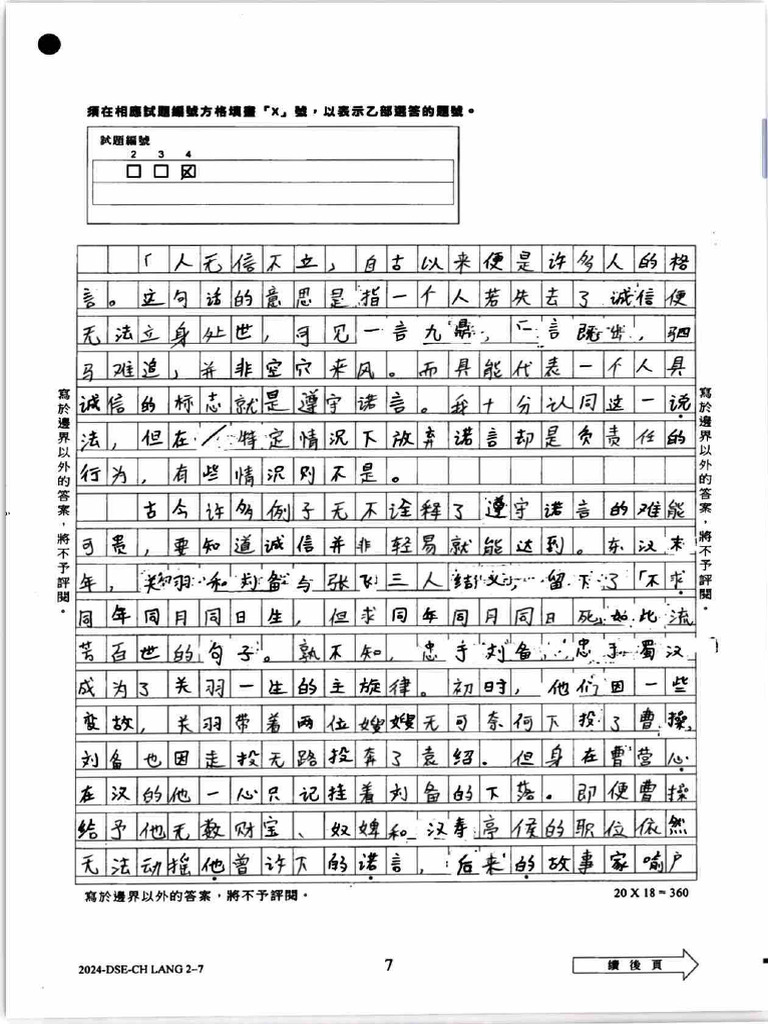 須在相應試題編號方格填畫「X」號，以表示乙部選答的題號。
試題編號
2 3 4
「人无信不立」，自古以来便是许多人的格
言。这句话的意思是指一个人若失去了诚信便
无法立身处世，可见一言九鼎，「一言既出，驷
马难追」并非空穴来风。而具能代表一个人具
诚信的标志就是遵守诺言。我十分认同这一说
法，但在特定情况下放弃诺言却是负责任的
行为，有些情况则不是。
古今许多例子无不诠释了遵守诺言的难能
可贵，要知道诚信并非轻易就能达到。东汉末
年，关羽和刘备与张飞三人结义，留下了「不求
同年同月同日生，但求同年同月同日死」如此流
芳百世的句子。孰不知，忠于刘备，忠于蜀汉
成为了关羽一生的主旋律。初时，他们因一些
变故，关羽带着两位嫂嫂无可奈何下投了曹操，
刘备也因走投无路投奔了袁绍。但身在曹营心
在汉的他一心只记挂着刘备的下落。即便曹操
给予他无数财宝、奴婢和汉寿亭侯的职位依然
无法动摇他曾许下的诺言，后来的故事家喻户
寫於邊界以外的答案，將不予評閱。
寫於邊界以外的答案，將不予評閱。
寫於邊界以外的答案，將不予評閱。
20 X 18 = 360
2024-DSE-CH LANG 2–7
7
續後頁